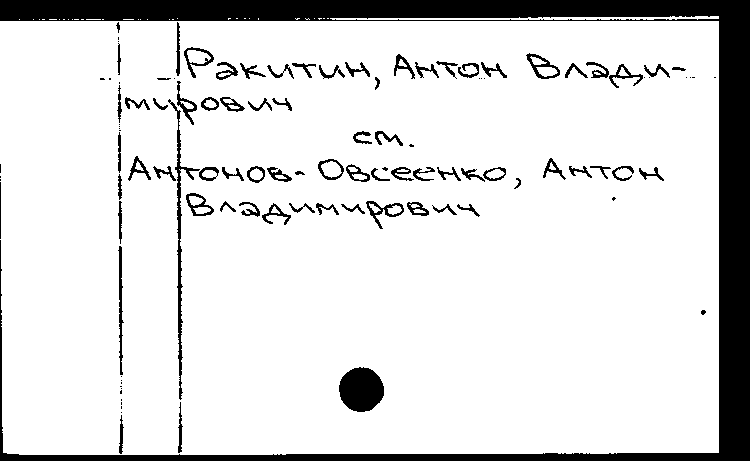 Ракитин, Антон Влади-
мирович
см.
Антонов-Овсеенко, Антон
Владимирович